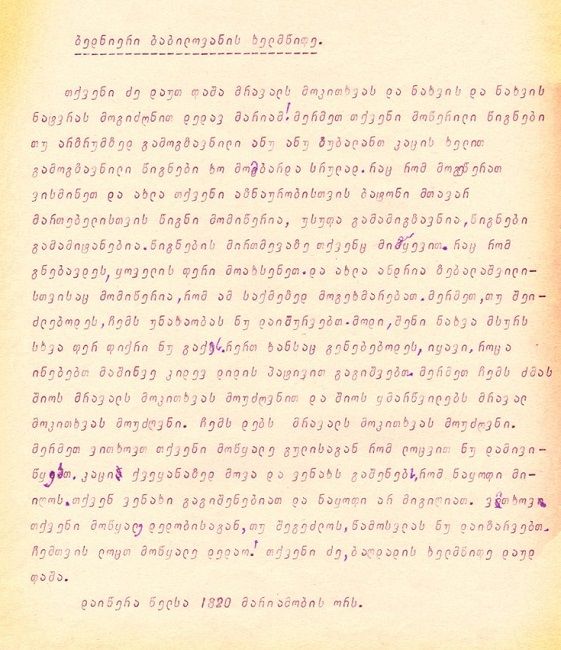 ბედნიერი ბაბილოვანის ხელმწიფე.
თქვენი ძე დაუთ ფაშა მრავალს მოკითხვას და ნახვის და ნახვის
ნატვრას მოგიძღნით დედავ მარიამ! მერმეთ თქვენი მოწერილი წიგნები
თუ არზრუმზედ გამოგზავნილი ანუ ანუ ზუბალანთ კაცის ხელით
გამოგზავნილი წიგნები ხო მომბარდა სრულად. რაც რომ მოგეწერათ
ვისმინეთ და ახლა თქვენი აზნაურობისთვის ბატონი მთავარ
მართებელისთვის წიგნი მომიწერია, უსუფა გამამიგზავნია, წიგნები
გამამიტანებია. წიგნების მირთმევაზე თქვენც მიჰყევით. რაც რომ
გნებავდეს, ყოველის ფერი მოახსენეთ. და ახლა ანდრია ზებალაშვილი-
სთვისაც მომიწერია, რომ ამ საქმეზედ მოგეხმარებათ. მერმეთ, თუ შეი-
ძლებოდეს, ჩემს უნახაობას ნუ დაიშურვებთ. მოდი, შენი ნახვა მსურს
სხვა ფერ ფიქრი ნუ გაქვს. რერთ ხანსაც გენებებოდეს, იყავი, როცა
ინებებთ მაშინვე კიდევ დიდის პატივით გაგიშვებთ. მერმეთ ჩემს ძმას
შიოს მრავალს მოკითხვას მოუძღვნით და შიოს ყმარწვილებს მრავალ
მოკითხვას მოუძღვნი. ჩემს დებს მრავალს მოკითხვას მოუძღვნი.
მერმეთ ვითხოვთ თქვენი მოწყალე გულისაგან რომ ლოცვით ნუ დამივი-
წყებთ. კაცი ქვეყანაზედ მოვა და ვენახს გაშენებს, რომ ნაყოფი მი-
იღოს. თქვენ ვენახი გაგიშენებიათ და ნაყოფი არ მიგიღიათ. ვითხოვ
თქვენი მოწყალე დედობისაგან, თუ შეგეძლოს, წამოსვლას ნუ დაიზარვებთ.
ჩემთვის ლოცთ მოწყალე დედაო! თქვენი ძე, ბაღდადის ხელმწიფე დაუდ
ფაშა.
დაიწერა წელსა 1820 მარიამობის ორს.